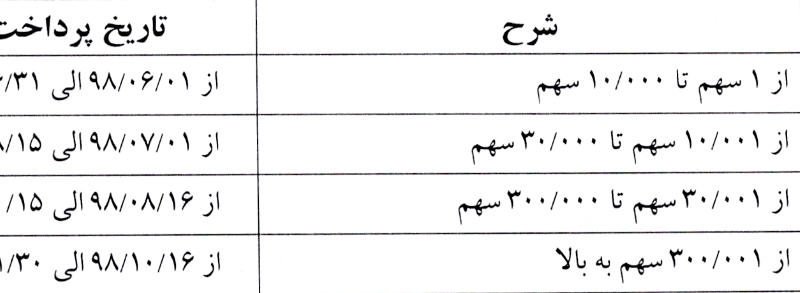 شرح تاریخ پرداخت
از ۱ سهم تا ۱۰/۰۰۰ سهم از ۹۸/۰۶/۰۱ الی /۳۱
از ۱۰/۰۰۱ سهم تا ۳۰/۰۰۰ سهم از ۹۸/۰۷/۰۱ الی /۱۵
از ۳۰/۰۰۱ سهم تا ۳۰۰/۰۰۰ سهم از ۹۸/۰۸/۱۶ الی /۱۵
از ۳۰۰/۰۰۱ سهم به بالا از ۹۸/۱۰/۱۶ الی /۳۰